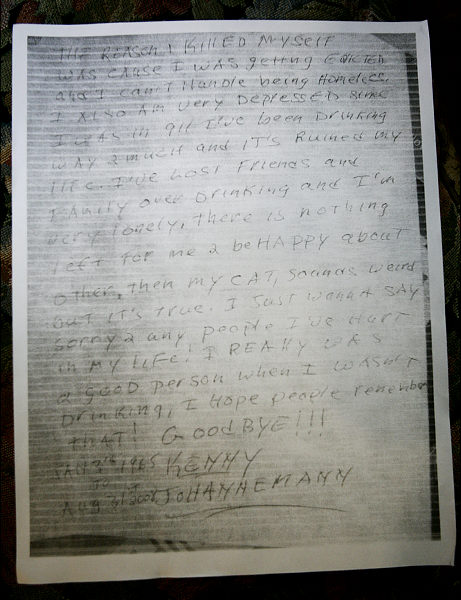 THE REASON I KILLED MYSELF
WAS CAUSE I WAS getting EVICTED
and I can't Handle being Homeless.
I Also Am Very Depressed since
I WAS in I've been Drinking
WAY 2 much and it's Ruined my
life. I've Lost Friends and
FAmily over Drinking and I'm
very lonely, there is nothing
left for me 2 be HAPPY about
other, then my CAT, Sounds weird
but it's true. I Just wanna SAY
Sorry 2 any people I've Hurt
in my LIFE! I REAlly WAS
a good person when I WASN'T
Drinking, I Hope people remember
that! GoodBYE!!!
KENNY
JOHANNEMANN